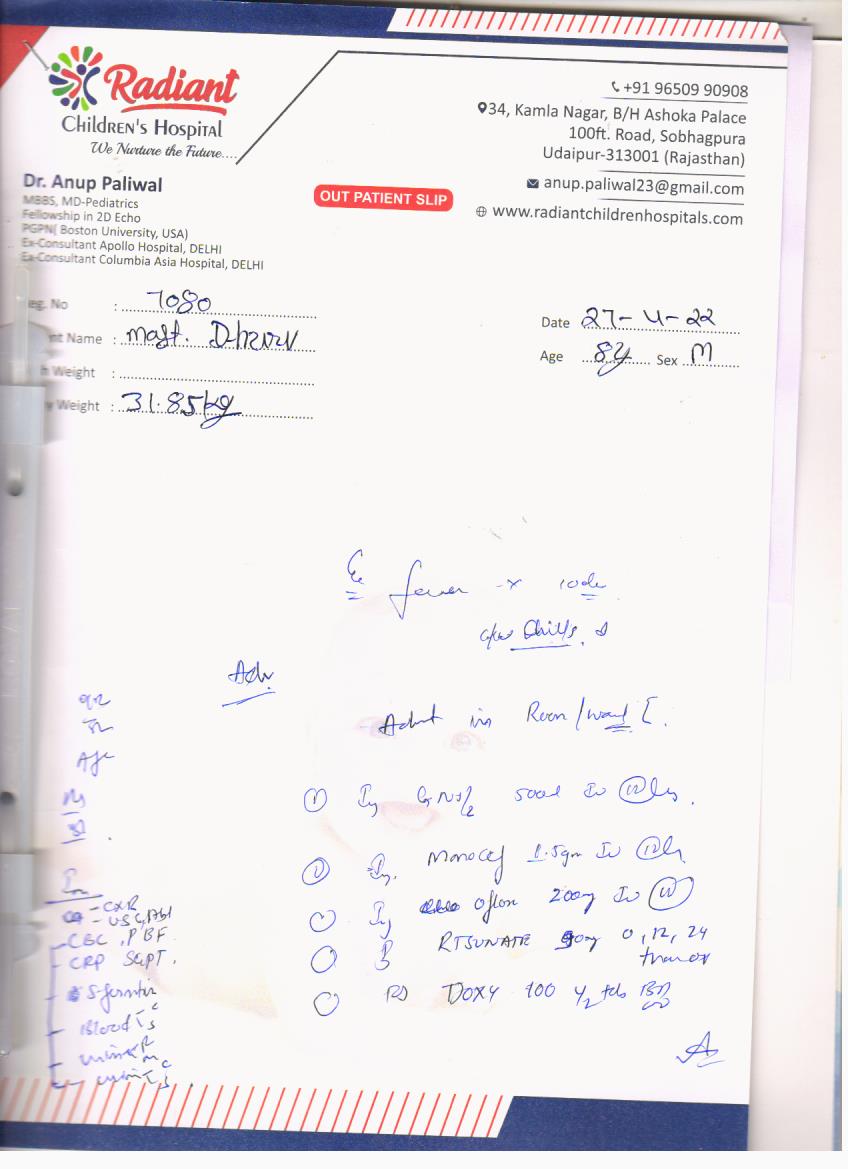 Radiant
CHILDREN'S HOSPITAL
We Nurture the Future....
+91 96509 90908
34, Kamla Nagar, B/H Ashoka Palace
100ft. Road, Sobhagpura
Udaipur-313001 (Rajasthan)
anup.paliwal23@gmail.com
www.radiantchildrenhospitals.com
Dr. Anup Paliwal
MBBS, MD-Pediatrics
Fellowship in 2D Echo
PGPN( Boston University, USA)
Ex-Consultant Apollo Hospital, DELHI
Ex-Consultant Columbia Asia Hospital, DELHI
OUT PATIENT SLIP
eg. No : 7080
nt Name : mast. Dhruv
h Weight :
y Weight : 31.85kg
Date 27-4-22
Age 8y Sex M
fever
Chills
Adv
Admit in Room/ward
① Inj 500ml IV
Inj. Monocef 1.5gm IV
Inj oflox 200mg IV
RTSUNATE 0, 12, 24
DOXY 100 1/2 tab BD
- CXR
- USG Abd
- CBC, PBF
- CRP SGPT.
- S. ferritin
- Blood C/S
- urine R/M
- urine C/S